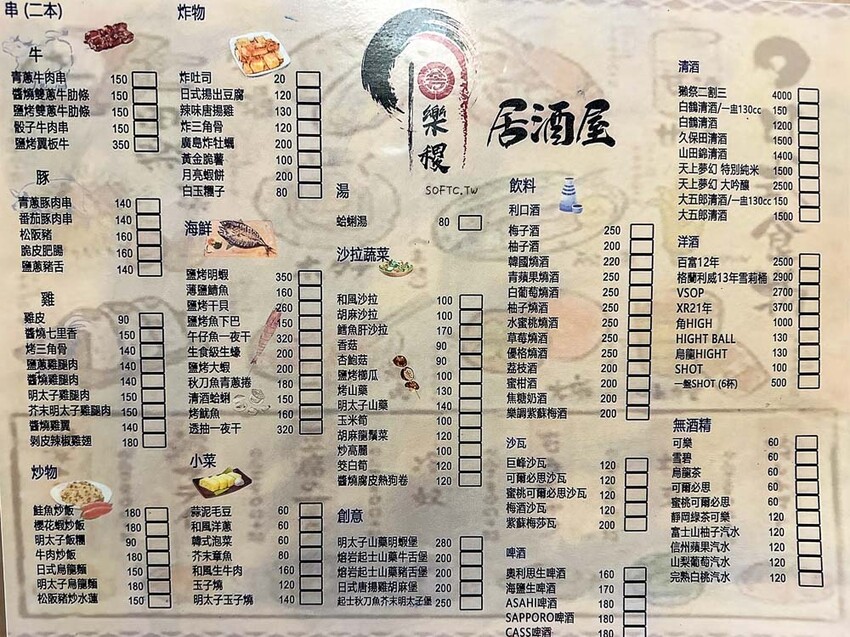 串 (二本)
牛
青蔥牛肉串 150
醬燒雙蔥牛肋條 150
鹽烤雙蔥牛肋條 150
骰子牛肉串 150
鹽烤翼板牛 350
豚
青蔥豚肉串 140
番茄豚肉串 140
松阪豬 160
脆皮肥腸 160
鹽蔥豬舌 140
雞
雞皮 90
醬燒七里香 150
烤三角骨 150
鹽蔥雞腿肉 150
醬燒雞腿肉 150
明太子雞腿肉 150
芥末明太子雞腿肉 150
醬燒雞翼 150
剝皮辣椒雞翅 180
炒物
鮭魚炒飯 180
櫻花蝦炒飯 180
明太子飯糰 90
牛肉炒飯 180
日式烏龍麵 180
明太子烏龍麵 180
松阪豬炒水蓮 150
炸物
炸吐司 20
日式揚出豆腐 120
辣味唐揚雞 130
炸三角骨 120
廣島炸牡蠣 200
黃金脆薯 100
月亮蝦餅 200
白玉糰子 80
海鮮
鹽烤明蝦 350
薄鹽鯖魚 160
鹽烤干貝
鹽烤魚下巴
午仔魚一夜干 320
生食級生蠔
鹽烤大蝦 200
秋刀魚青蔥捲 180
清酒蛤蜊
烤魷魚 180
透抽一夜干 320
小菜
蒜泥毛豆 60
和風洋蔥 60
韓式泡菜 60
芥末章魚 80
和風生牛肉 160
玉子燒 120
明太子玉子燒 140
樂稷
居酒屋
SOFTC.TW
湯
蛤蜊湯 80
沙拉蔬菜
和風沙拉 100
胡麻沙拉 100
鱈魚肝沙拉 170
香菇 90
杏鮑菇 90
鹽烤櫛瓜 100
烤山藥 130
明太子山藥 140
玉米筍 100
胡麻龍鬚菜 120
炒高麗 100
筊白筍 120
醬燒腐皮熱狗卷 120
創意
明太子山藥明蝦堡 280
熔岩起士山藥牛舌堡 200
熔岩起士山藥豬舌堡 200
日式唐揚雞胡麻堡 200
起士秋刀魚芥末明太子堡 250
飲料
利口酒
梅子酒 250
柚子酒 200
韓國燒酒 220
青蘋果燒酒 250
白葡萄燒酒 250
柚子燒酒 250
水蜜桃燒酒 250
草莓燒酒 250
優格燒酒 250
荔枝酒 200
蜜柑酒 200
焦糖奶酒 200
樂調紫蘇梅酒 200
沙瓦
巨峰沙瓦 120
可爾必思沙瓦 120
蜜桃可爾必思沙瓦 120
梅酒沙瓦 120
紫蘇梅莎瓦 200
啤酒
奧利思生啤酒 160
海鹽生啤酒 170
ASAHI啤酒 180
SAPPORO啤酒 180
CASS啤酒 180
清酒
獺祭二割三 4000
白鶴清酒/一盅130cc 150
白鶴清酒 1200
久保田清酒 1500
山田錦清酒 1400
天上夢幻 特別純米 1500
天上夢幻 大吟釀 2500
大五郎清酒/一盅130cc 150
大五郎清酒 1500
洋酒
百富12年 2500
格蘭利威13年雪莉桶 2900
VSOP 2700
XR21年 3700
角HIGH 1000
HIGHT BALL 130
烏龍HIGHT 130
SHOT 100
一盤SHOT (6杯) 500
無酒精
可樂 60
雪碧 60
烏龍茶 60
可爾必思 60
蜜桃可爾必思 60
靜岡綠茶可樂 120
富士山柚子汽水 120
信州蘋果汽水 120
山梨葡萄汽水 120
完熟白桃汽水 120